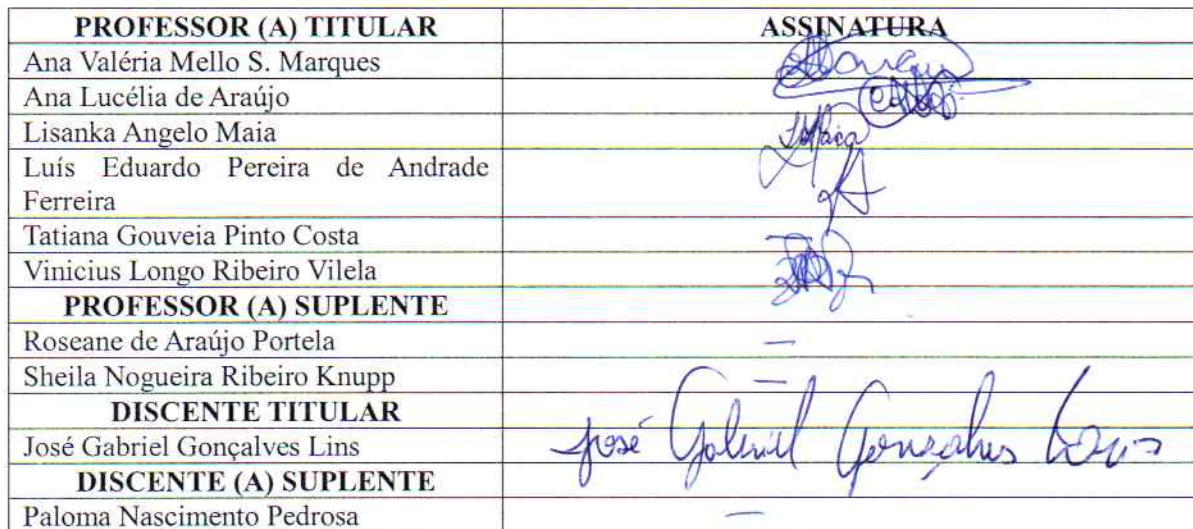 PROFESSOR (A) TITULAR ASSINATURA
Ana Valéria Mello S. Marques
Ana Lucélia de Araújo
Lisanka Angelo Maia
Luís Eduardo Pereira de Andrade
Ferreira
Tatiana Gouveia Pinto Costa
Vinicius Longo Ribeiro Vilela
PROFESSOR (A) SUPLENTE
Roseane de Araújo Portela —
Sheila Nogueira Ribeiro Knupp —
DISCENTE TITULAR
José Gabriel Gonçalves Lins José Gabriel Gonçalves Lins
DISCENTE (A) SUPLENTE
Paloma Nascimento Pedrosa —